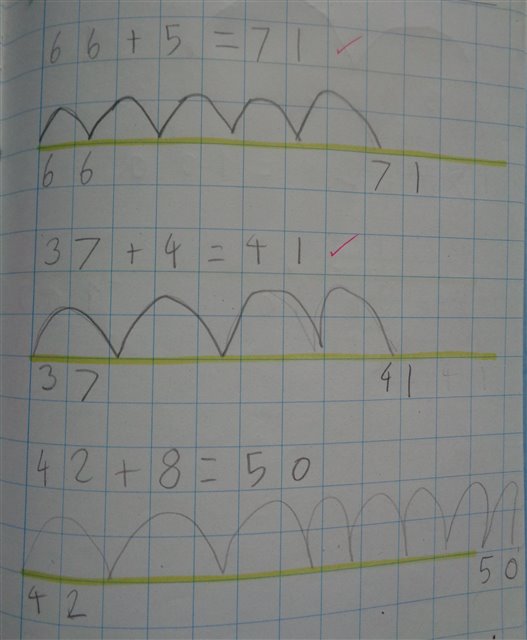 66+5=71
66 71
37+4=41
37 41
42+8=50
42 50